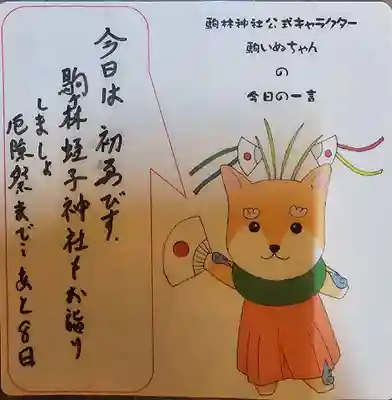 駒林神社公式キャラクター
駒いぬちゃん
の
今日の一言
今日は 初ゑびす.
駒林蛭子神社もお詣り
しましょ
厄除祭まで:あと8日